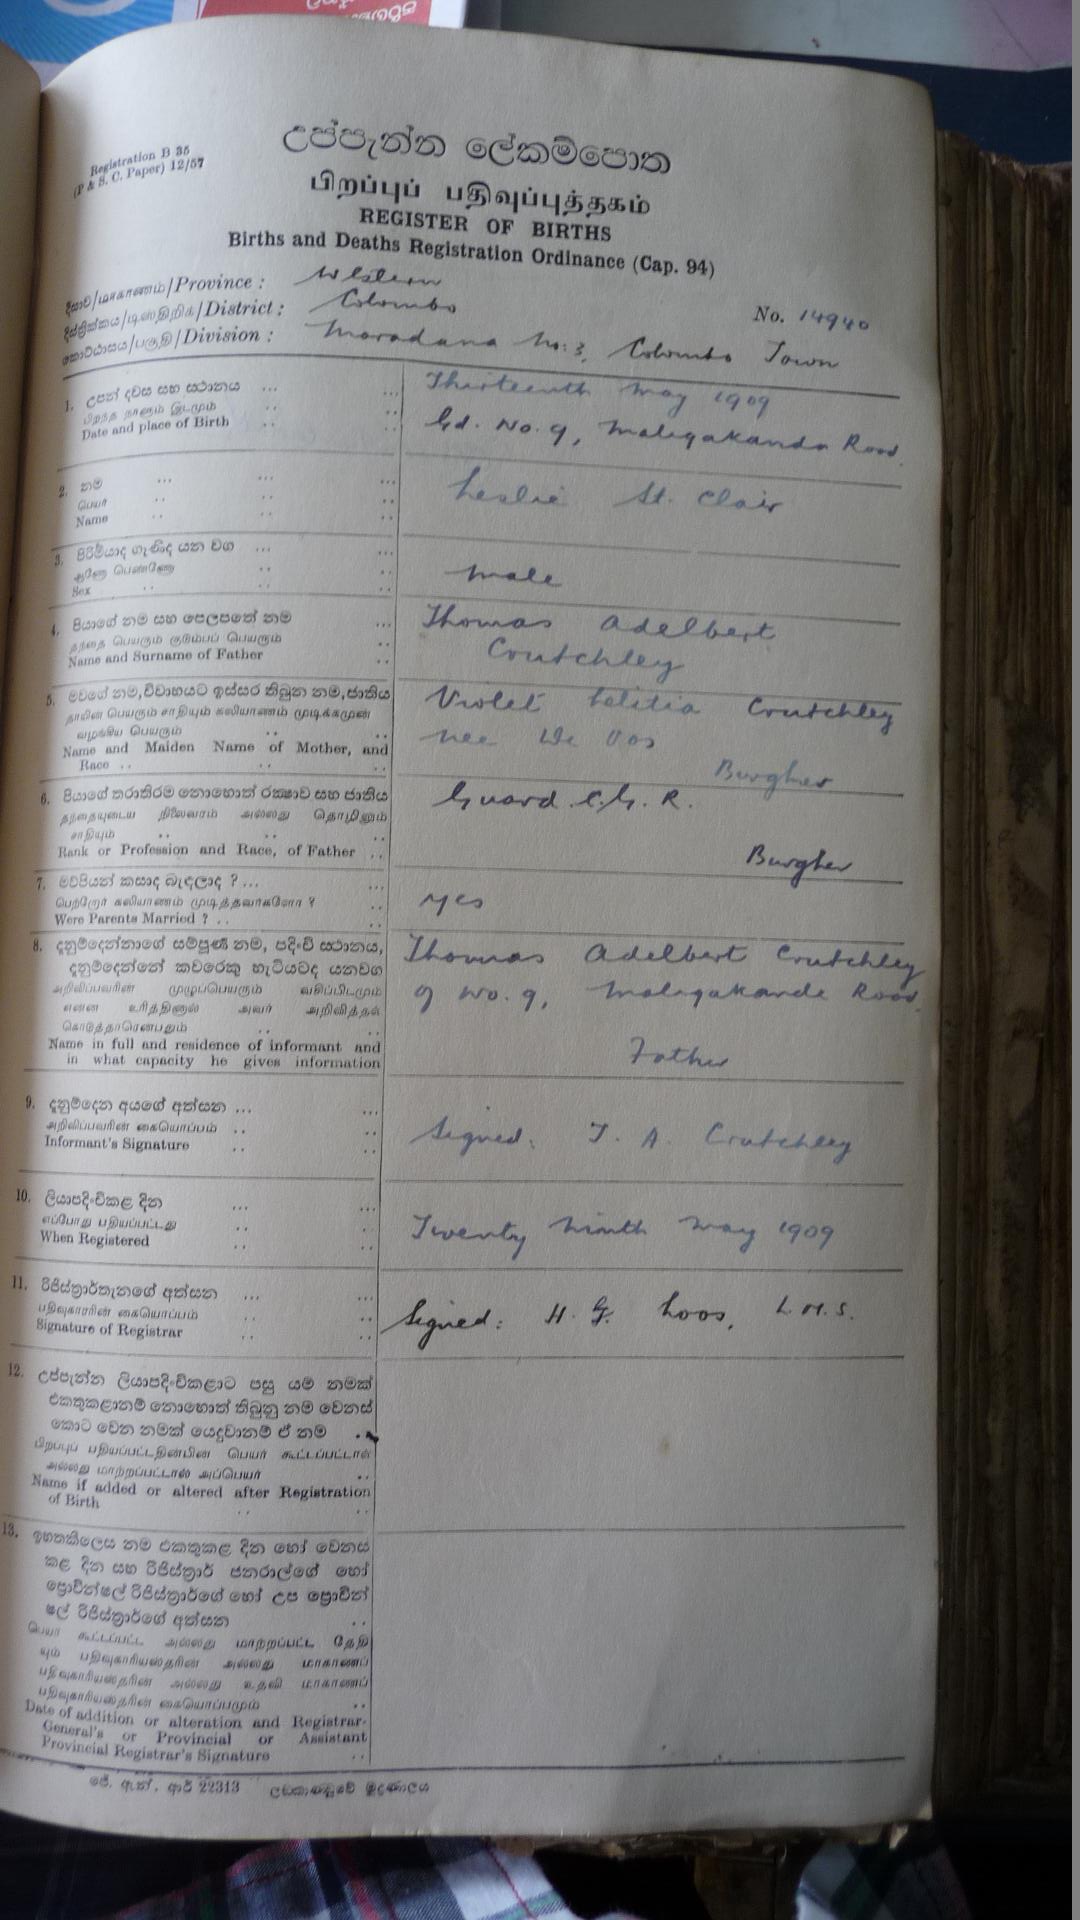 Registration B 35
(P & S. C. Paper) 12/57
උප්පැන්න ලේකම්පොත
பிறப்புப் பதிவுப்புத்தகம்
REGISTER OF BIRTHS
Births and Deaths Registration Ordinance (Cap. 94)
දිසාව/மாகாணம்/Province : Western
දිස්ත්‍රික්කය/டிஸ்திறிக்/District : Colombo
No. 14940
කොට්ඨාසය/பகுதி/Division : Maradana No: 3, Colombo Town
1. උපන් දවස සහ ස්ථානය ... ...
பிறந்த நாளும் இடமும் .. ..
Date and place of Birth .. ..
Thirteenth May 1909
Gd. No. 9, Maligakanda Road.
2. නම ... ... ...
பெயர் .. .. ..
Name .. .. ..
Leslie St. Clair
3. පිරිමියාද ගැණිද යන වග ... ...
ஆணோ பெண்ணோ .. ..
Sex .. .. ..
Male
4. පියාගේ නම සහ පෙලපතේ නම ...
தந்தை பெயரும் குடும்பப் பெயரும் ..
Name and Surname of Father ..
Thomas Adelbert
Crutchley
5. මවගේ නම, විවාහයට ඉස්සර තිබුන නම, ජාතිය
தாயின் பெயரும் சாதியும் கலியாணம் முடிக்கமுன்
வழங்கிய பெயரும் .. ..
Name and Maiden Name of Mother, and
Race .. .. ..
Violet Letitia Crutchley
nee De Vos
Burgher
6. පියාගේ තරාතිරම නොහොත් රක්ෂාව සහ ජාතිය
தந்தையுடைய நிலைவரம் அல்லது தொழிலும்
சாதியும் .. .. ..
Rank or Profession and Race, of Father ..
Guard C.G.R.
Burgher
7. මව්පියන් කසාද බැඳලාද ? ... ...
பெற்றோர் கலியாணம் முடித்தவர்களோ ? ..
Were Parents Married ? .. ..
Yes
8. දැනුම්දෙන්නාගේ සම්පූර්ණ නම, පදිංචි ස්ථානය,
දැනුම්දෙන්නේ කවරෙකු හැටියටද යනවග
அறிவிப்பவரின் முழுப்பெயரும் வசிப்பிடமும்
என்ன உரித்தினால் அவர் அறிவித்தல்
கொடுத்தாரென்பதும் .. ..
Name in full and residence of informant and
in what capacity he gives information
Thomas Adelbert Crutchley
of No. 9, Maligakanda Road
Father
9. දැනුම්දෙන අයගේ අත්සන ... ...
அறிவிப்பவரின் கையொப்பம் .. ..
Informant's Signature .. ..
Signed: T. A. Crutchley
10. ලියාපදිංචිකළ දින ... ...
எப்போது பதியப்பட்டது .. ..
When Registered .. ..
Twenty Ninth May 1909
11. රිජිස්ත්‍රාර්තැනගේ අත්සන ... ...
பதிவுகாரரின் கையொப்பம் .. ..
Signature of Registrar .. ..
Signed: H. G. Loos, L.M.S.
12. උප්පැන්න ලියාපදිංචිකළාට පසු යම් නමක්
එකතුකළානම් නොහොත් තිබුනු නම වෙනස්
කොට වෙන නමක් යෙදුවානම් ඒ නම ..
பிறப்புப் பதியப்பட்டதின்பின் பெயர் கூட்டப்பட்டால்
அல்லது மாற்றப்பட்டால் அப்பெயர் ..
Name if added or altered after Registration
of Birth .. ..
13. ඉහතකිලෙස නම එකතුකළ දින හෝ වෙනස්
කළ දින සහ රිජිස්ත්‍රාර් ජනරාල්ගේ හෝ
ප්‍රොවින්ෂල් රිජිස්ත්‍රාර්ගේ හෝ උප ප්‍රොවින්
ෂල් රිජිස්ත්‍රාර්ගේ අත්සන ..
பெயர் கூட்டப்பட்ட அல்லது மாற்றப்பட்ட தேதி
யும் பதிவுகாரியஸ்தரின் அல்லது மாகாணப்
பதிவுகாரியஸ்தரின் அல்லது உதவி மாகாணப்
பதிவுகாரியஸ்தரின் கையொப்பமும் ..
Date of addition or alteration and Registrar-
General's or Provincial or Assistant
Provincial Registrar's Signature ..
ජේ. ඇන්. ආර් 22313 ලඞකාණ්ඩුවේ මුද්‍රණාලය